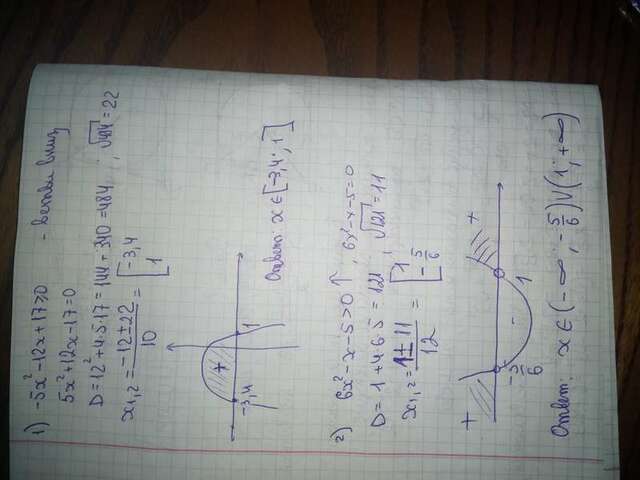 1) -5x²-12x+17≥0 - ветви вниз
5x²+12x-17=0
D=12²+4·5·17=144+340=484, ; √484=22
x₁,₂=(-12±22)/10=[-3,4 1
+
-3,4 1
Ответ: x∈[-3,4; 1]
2) 6x²-x-5>0↑, 6x²-x-5=0
D=1+4·6·5=121, √121=11
x₁,₂=(1±11)/12=[1 -5/6
+ - +
-5/6 1
Ответ: x∈(-∞; -5/6)∪(1; +∞)